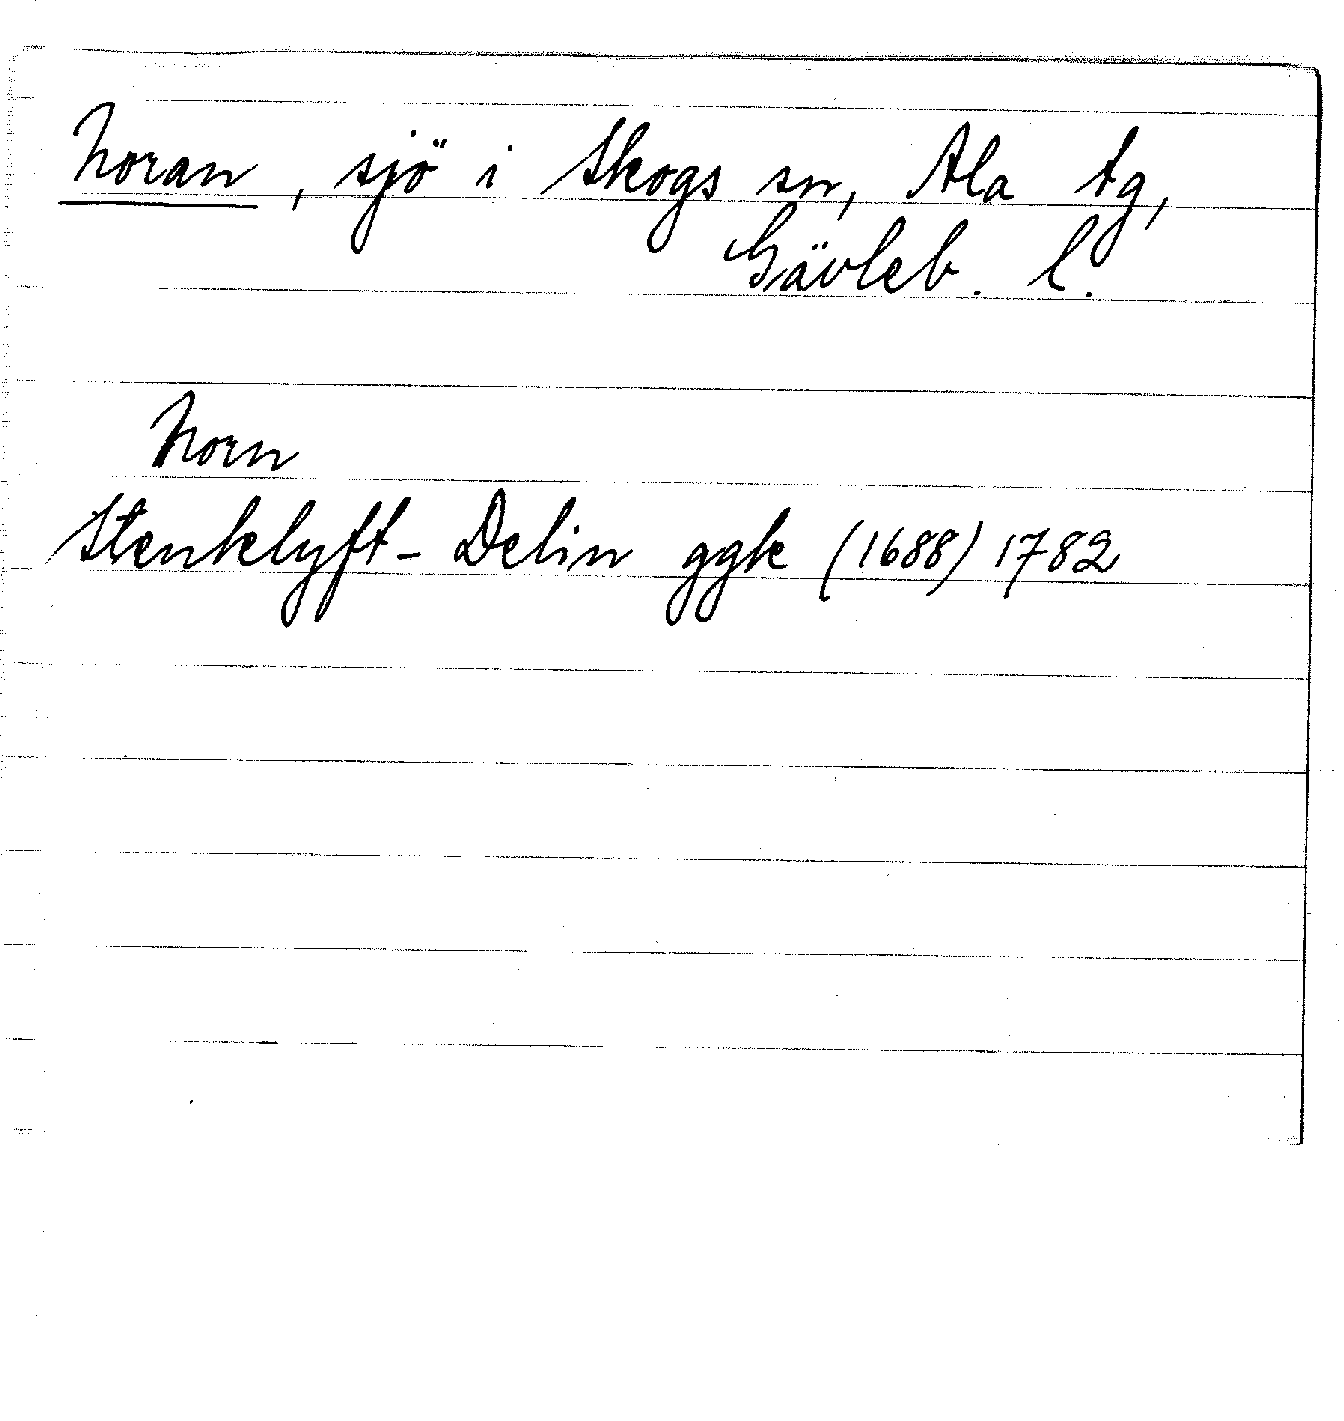 Noran, sjö i Skogs sn, Ala tg,
Gävleb. l.
Norn
Stenklyft-Delin ggk (1688) 1782